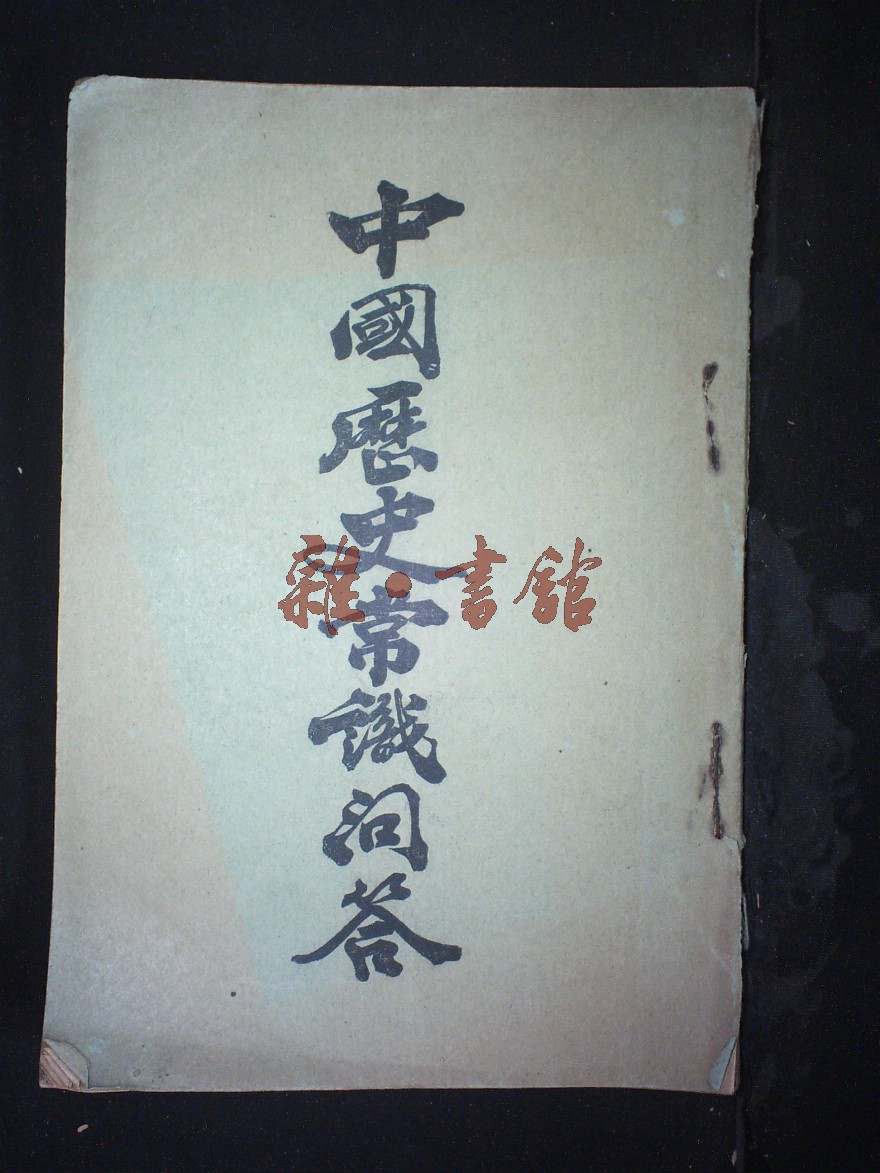 中國歷史常識問答
雜·書館